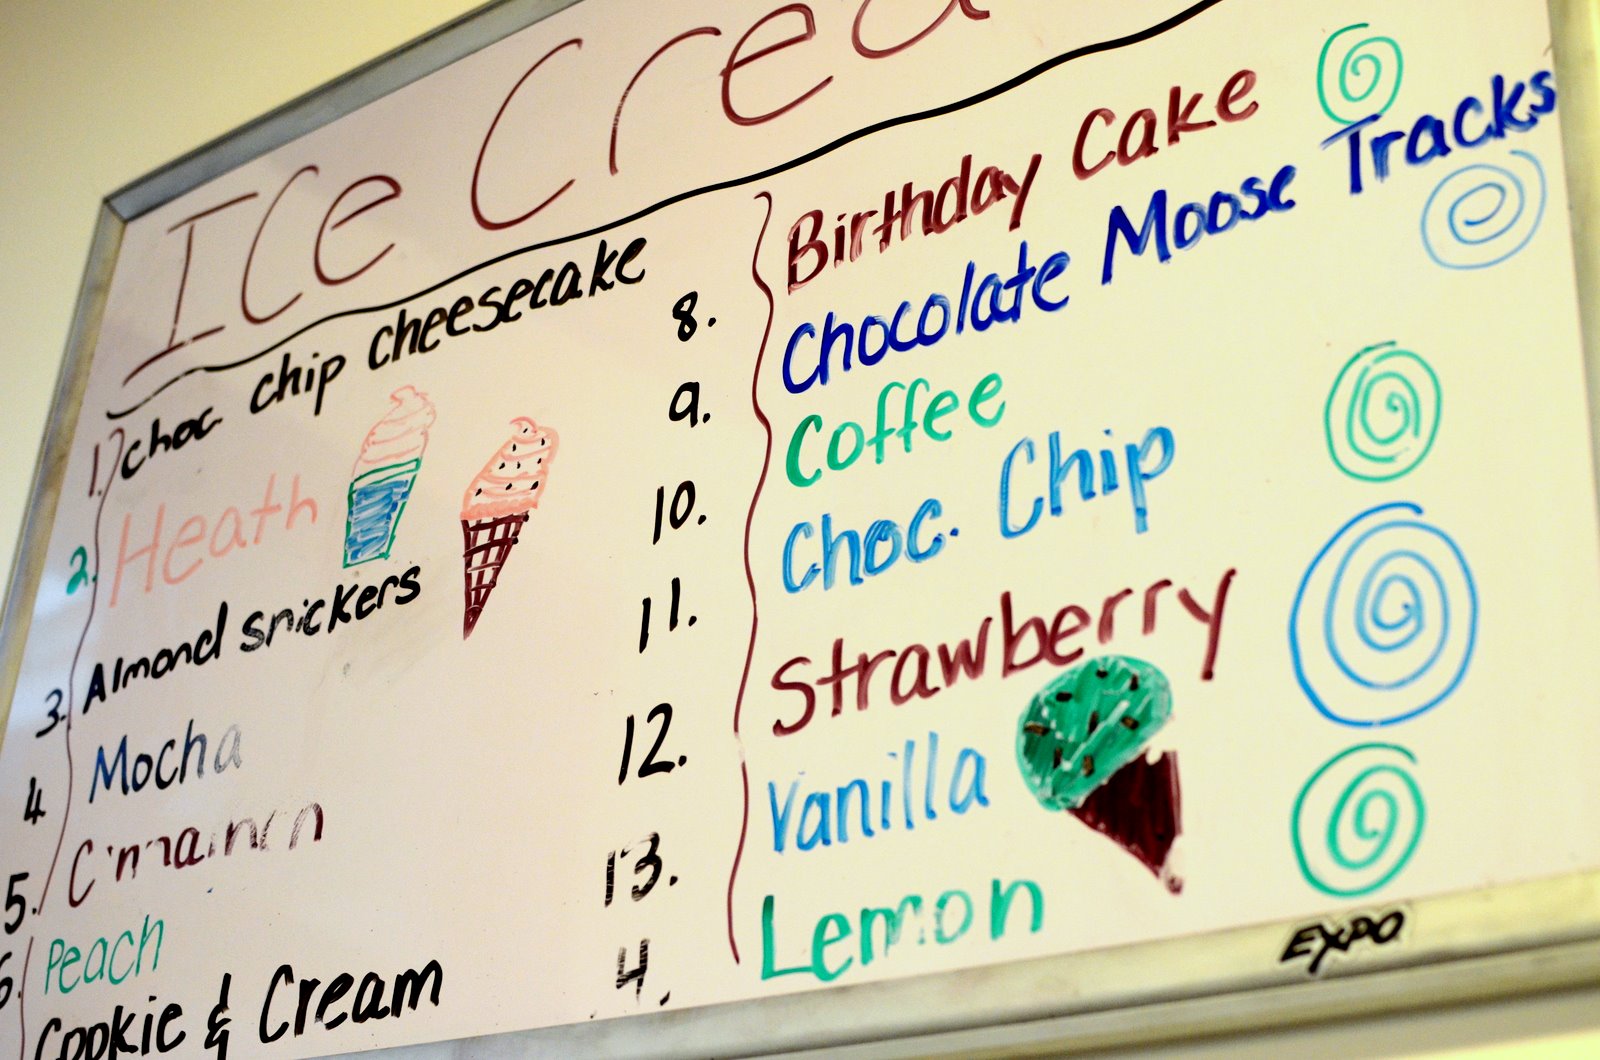 ICe Crea
1. choc. chip cheesecake
2. Heath
3. Almond snickers
4 Mocha
5. Cinnamon
6. Peach
Cookie & Cream
8. Birthday Cake
9. Chocolate Moose Tracks
10. Coffee
11. Choc. Chip
12. Strawberry
13. Vanilla
4. Lemon
EXPO